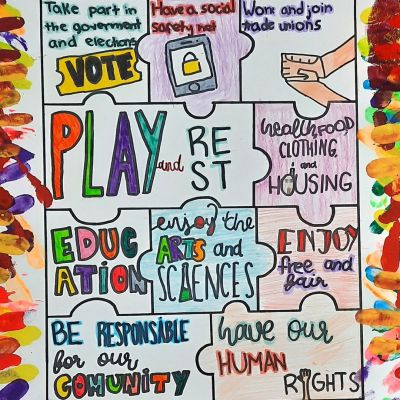 Take part in
the goverment
and elections
VOTE
Have a social
safety net
Work and join
trade unions
PLAY and REST
health FOOD
CLOTHING,
and
HOUSING
EDUC
ATION
enjoy the
ARTS and
SCAENCES
ENJOY
free and
fair
BE RESPONSIBLE
for our
COMUNITY
have our
HUMAN
RIGHTS